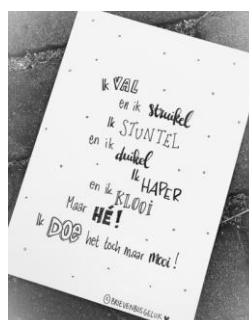 Ik VAL
en ik struikel
Ik STUNTEL
en ik duikel
Ik HAPER
en ik KLOOI
Maar HÉ!
Ik DOE het toch maar mooi!
@BRIEVENBUSGELUK